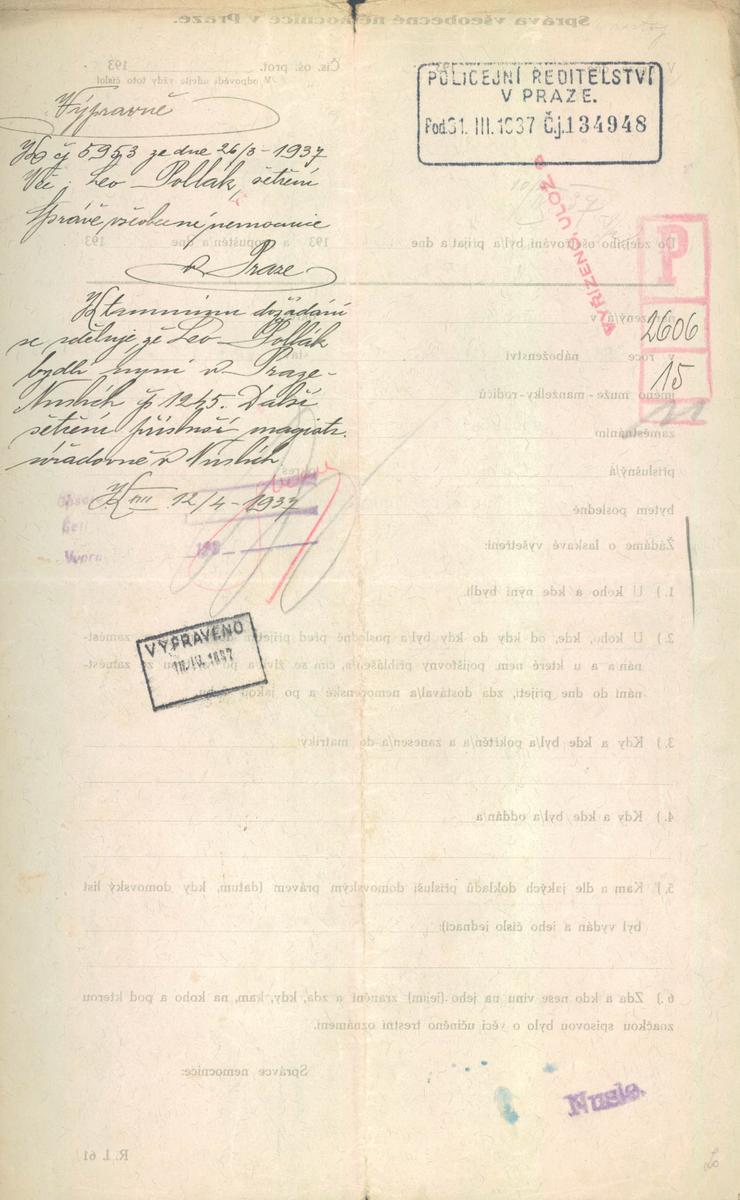 Správa všeobecné nemocnice v Praze.
Čís. oš. prot. 193
V odpovědi udejte vždy toto číslo!
POLICEJNÍ ŘEDITELSTVÍ
V PRAZE.
Pod. 31. III. 1937 Č.j. 134948
Výpravně
K čj 5953 ze dne 26/3 - 1937
Věc: Leo Pollák, šetření
Správě všeobecné nemocnice
v Praze
VYŘÍZENO, ULOŽ
P
2606
15
Do zdejšího ošetřování byl/a přijat a dne 193 a propuštěn/a dne 193
K tamnímu dožádání
se sděluje že Leo Pollák
bydlí nyní v Praze-
Nuslích čp 1245. Další
šetření přísluší magistr.
úřadovně v Nuslích.
K VIII 12/4 - 1937
narozený/á v
v roce náboženství
jméno muže - manželky - rodičů
zaměstnáním
příslušný/á
bytem posledně
Žádáme o laskavé vyšetření:
1.) U koho a kde nyní bydlí.
VYPRAVENO
IV. 1937
2.) U koho, kde, od kdy do kdy byl/a posledně před přijetím zaměst-
nán/a a u které nem. pojišťovny přihlášen/a, čím se živil/a zaměst-
nání do dne přijetí, zda dostával/a nemocenské a po jakou
3.) Kdy a kde byl/a pokřtěn/a a zanesen/a do matriky
4.) Kdy a kde byl/a oddán/a
5.) Kam a dle jakých dokladů přísluší domovským právem (datum, kdy domovský list
byl vydán a jeho číslo jednací):
6.) Zda a kdo nese vinu na jeho (jejím) zranění a zda, kdy, kam, na koho a pod kterou
značkou spisovou bylo o věci učiněno trestní oznámení.
Správce nemocnice:
Nusle.
R. I. 61